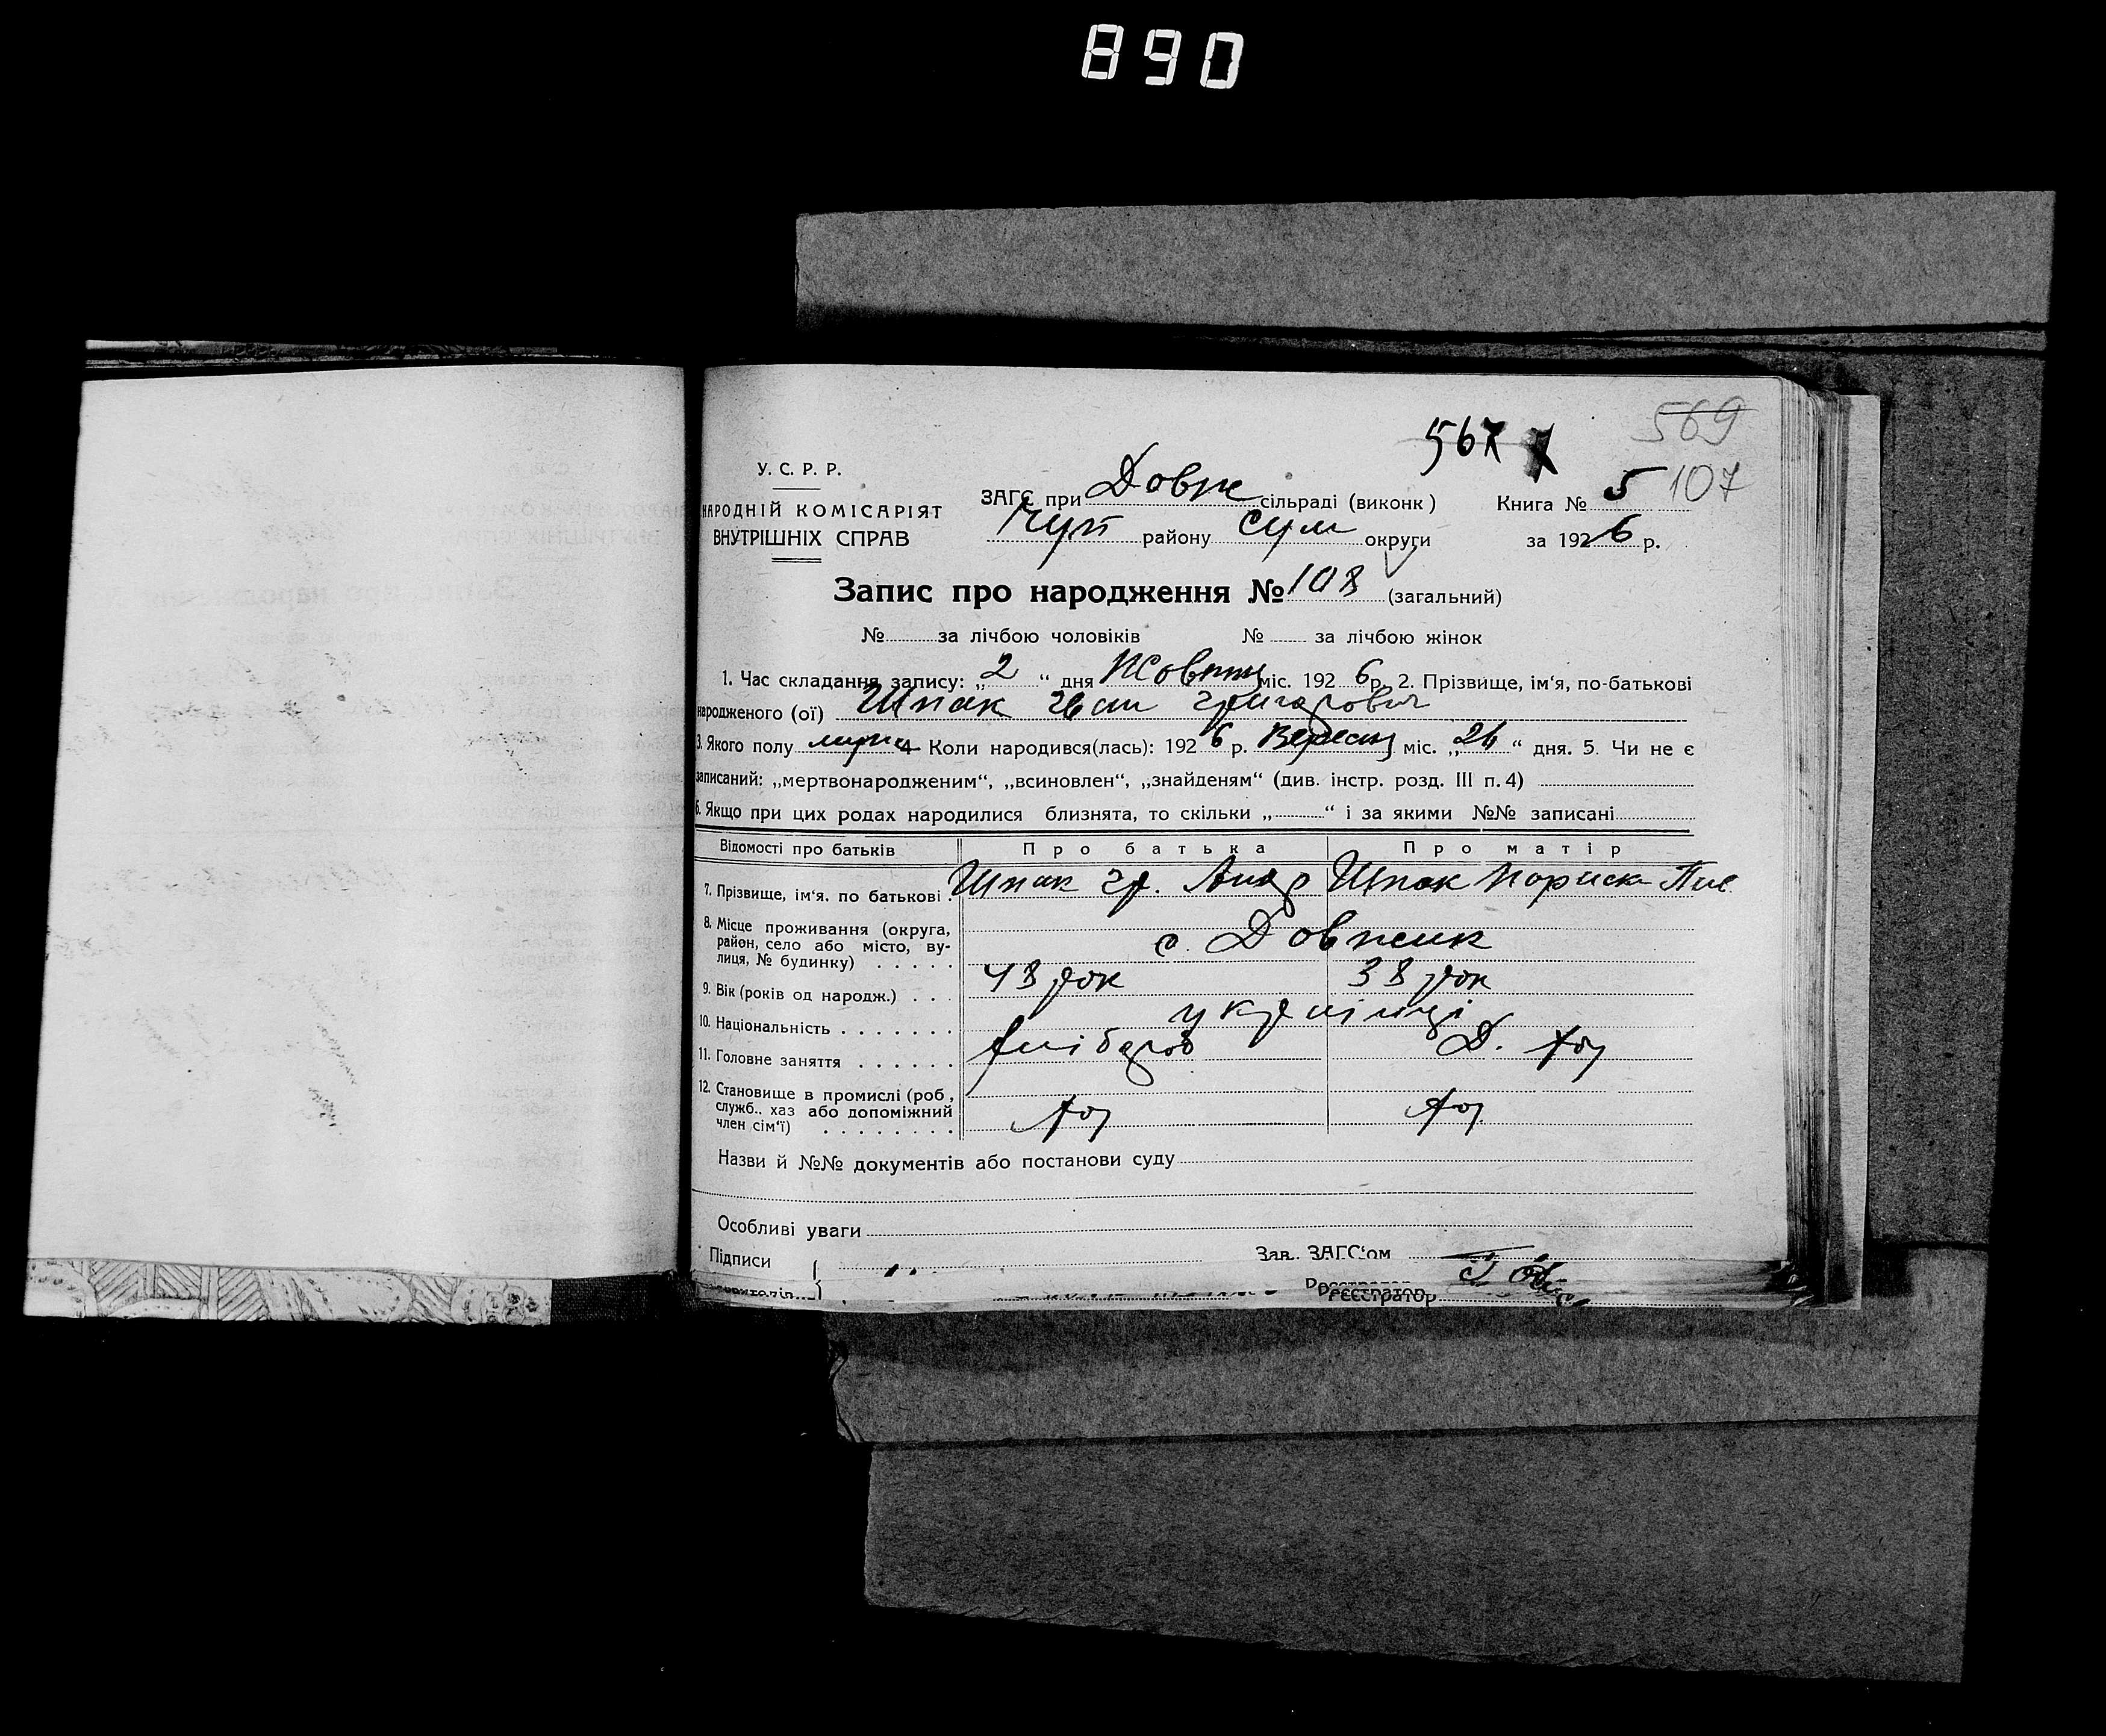 890
569
567
У. С. Р. Р.
НАРОДНІЙ КОМІСАРІЯТ
ВНУТРІШНІХ СПРАВ
ЗАГС при Довж сільраді (виконк)
Книга № 5 107
району Сум округи
за 1926 р.
Запис про народження № 108 (загальний)
№ за лічбою чоловіків № за лічбою жінок
1. Час складання запису: „2“ дня Жовтня міс. 1926 р. 2. Прізвище, ім‘я, по-батькові
народженого (ої) Шпак Іван Григорович
3. Якого полу 4 Коли народився(лась): 1926 р. Вересня міс. „26“ дня. 5. Чи не є
записаний: „мертвонародженим“, „всиновлен“, „знайденям“ (див. інстр. розд. III п. 4)
6. Якщо при цих родах народилися близнята, то скільки „ “ і за якими №№ записані
Відомості про батьків Про батька Про матір
7. Прізвище, ім‘я, по батькові . Шпак Гр. Андр Шпак
8. Місце проживання (округа,
район, село або місто, ву-
лиця, № будинку) . . . . .
с. Довжик
9. Вік (років од народж.) . . . 48 рок 38 рок
10. Національність . . . . . . . українці
11. Головне заняття . . . . . . хлібороб Д. хоз
12. Становище в промислі (роб.,
служб.. хаз або допоміжний
член сім‘ї) . . . . . . . .
хоз хоз
Назви й №№ документів або постанови суду
Особливі уваги
Підписи
Зав. ЗАГС‘ом
Реєстратор